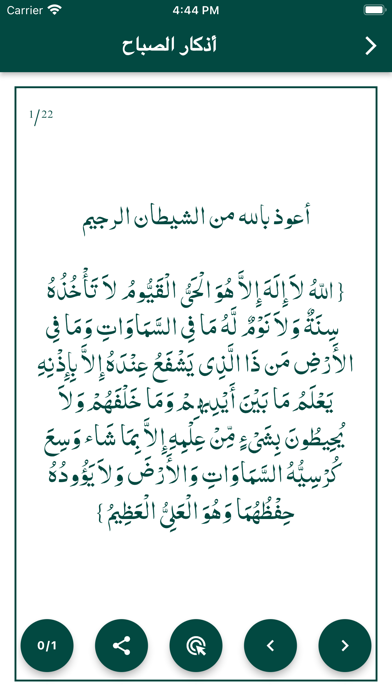 Carrier 4:44 PM
أذكار الصباح
1/22
أعوذ بالله من الشيطان الرجيم
{ اللّهُ لاَ إِلَهَ إِلاَّ هُوَ الْحَيُّ الْقَيُّومُ لاَ تَأْخُذُهُ
سِنَةٌ وَلاَ نَوْمٌ لَّهُ مَا فِي السَّمَاوَاتِ وَمَا فِي
الأَرْضِ مَن ذَا الَّذِي يَشْفَعُ عِنْدَهُ إِلاَّ بِإِذْنِهِ
يَعْلَمُ مَا بَيْنَ أَيْدِيهِمْ وَمَا خَلْفَهُمْ وَلاَ
يُحِيطُونَ بِشَيْءٍ مِّنْ عِلْمِهِ إِلاَّ بِمَا شَاء وَسِعَ
كُرْسِيُّهُ السَّمَاوَاتِ وَالأَرْضَ وَلاَ يَؤُودُهُ
حِفْظُهُمَا وَهُوَ الْعَلِيُّ الْعَظِيمُ }
0/1